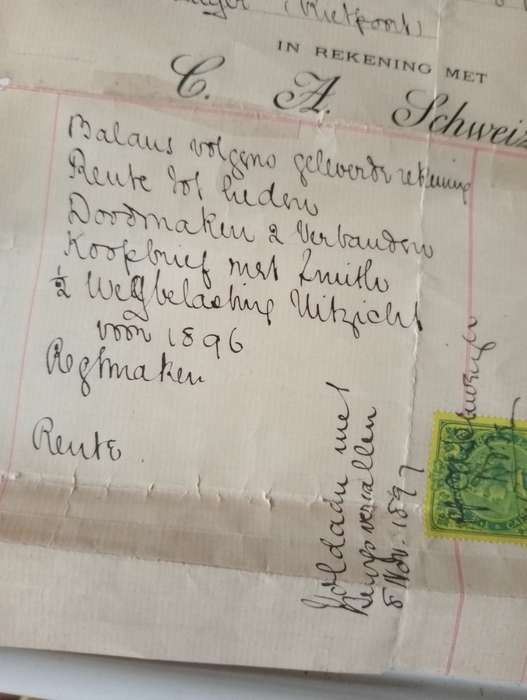 (Rietpoort)
IN REKENING MET
C. A. Schweiz
Balans volgens geleverde rekening
Rente tot heden
Doodmaken 2 Verbanden
Koopbrief met Smith
½ Wegbelasting Uitzicht
voor 1896
Regtmaken
Rente
Voldaan met
vervallen
8 Nov. 1897